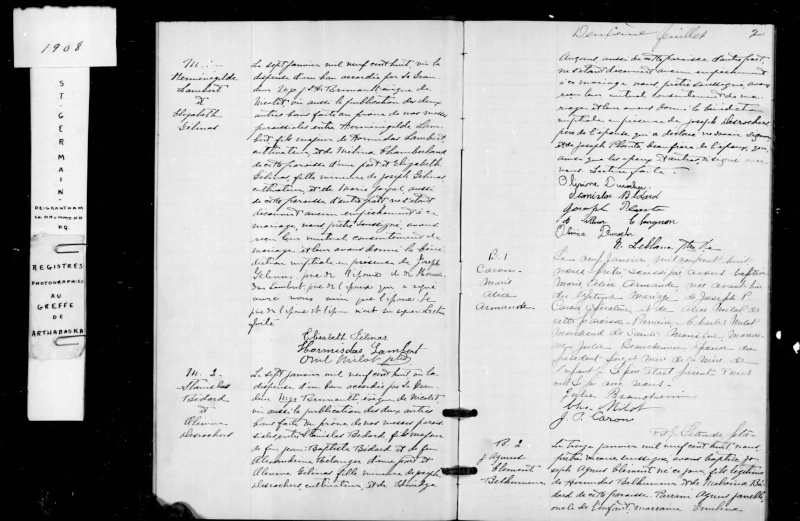 1908
ST-GERMAIN-
DE/GRANTHAM
CO. DRUMMOND
P.Q.
REGISTRES
PHOTOGRAPHIES
AU
GREFFE
DE
ARTHABASKA
M. 1
Herménégilde
Lambert
et
Elizabeth
Gélinas
Le sept janvier mil neuf cent huit, vu la
dispense d'un ban accordée par Sa Gran-
deur Mgr J. S. H. Brunault évêque de
Nicolet, vu aussi la publication des deux
autres bans faite au prône de nos messes
paroissiales entre Herménégilde Lam-
bert fils majeur de Hormisdas Lambert,
cultivateur, et de Mélina Chamberland
de cette paroisse d'une part et Elizabeth
Gélinas, fille mineure de Joseph Gélinas
cultivateur, et de Marie aussi
de cette paroisse d'autre part ne s'étant
découvert aucun empêchement à ce
mariage, nous prêtre soussigné, avons
reçu leur mutuel consentement de
mariage et leur avons donné la béné-
diction nuptiale en présence de Joseph
Gélinas, père de l'épouse et de Hormis-
das Lambert, père de l'époux qui a signé
avec nous ainsi que l'épouse. Le
père de l'épouse et l'époux n'ont su signer. Lecture
faite
Elisabeth Gélinas
Hormisdas Lambert
Milot ptre
M. 2
Stanislas
Bédard
et
Alvina
Desrochers
Le sept janvier mil neuf cent huit vu la
dispense d'un ban accordée par Sa Gran-
deur Mgr Brunault évêque de Nicolet
vu aussi la publication des deux autres
bans faite au prône de nos messes parois-
siales entre Stanislas Bédard, fils majeur
de feu Jean-Baptiste Bédard et de feu
Alexandrine Bélanger d'une part et
Alvina fille mineure de Joseph
Desrochers cultivateur, et de
Deuxième feuillet 2
aussi de cette paroisse d'autre part,
ne s'étant découvert aucun empêchement
à ce mariage nous prêtre soussigné avons
reçu leur mutuel consentement de ma-
riage et leur avons donné la bénédiction
nuptiale en présence de Joseph Desrochers
père de l'épouse qui a déclaré ne savoir signer
et de Joseph Plante, beau-père de l'époux, qui,
ainsi que les époux et autres, a signé avec
nous. Lecture faite.
Stanislas Bédard
Joseph Plante
N. Leblanc Ptre
B. 1
Caron
Marie
Alice
Armande
Le neuf janvier mil neuf cent huit
nous prêtre soussigné avons baptisé
Marie Alice Armande, née avant hier
du légitime mariage de Joseph P.
Caron et de Alice Milot de
cette paroisse. Parrain Charles Milot
marchand de Sainte Monique, marrai-
ne Julie Beauchemin épouse du
précédent père et mère de la mère de
l'enfant. Le père était présent. Tous
ont signé avec nous.
Julie Beauchemin
Chs. Milot
J. P. Caron
B 2
J. Agnus
Clément
Bellemare
Le treize janvier mil neuf cent huit nous
prêtre vicaire soussigné, avons baptisé Jo-
seph Agnus Clément né ce jour, fils légitime
de Hormidas Bellemare et de Malvina Bé-
dard de cette paroisse. Parrain Agnus Janelle
oncle de l'enfant, marraine